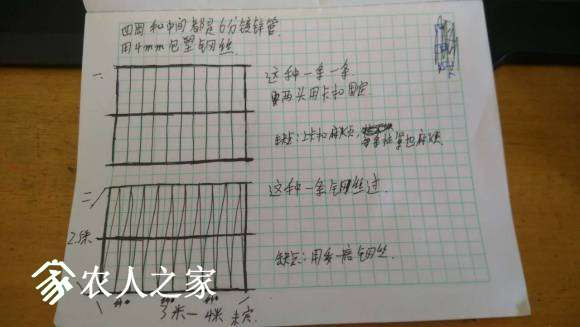 四周和中间都是6分镀锌管.
用4mm包塑钢丝
一.
这种一条一条
两头用卡扣固定
缺点:上卡扣麻烦,
算也麻烦
二.
这种一条钢丝过.
2.1米
缺点:用多一倍钢丝
3米一4米 未定.
农人之家